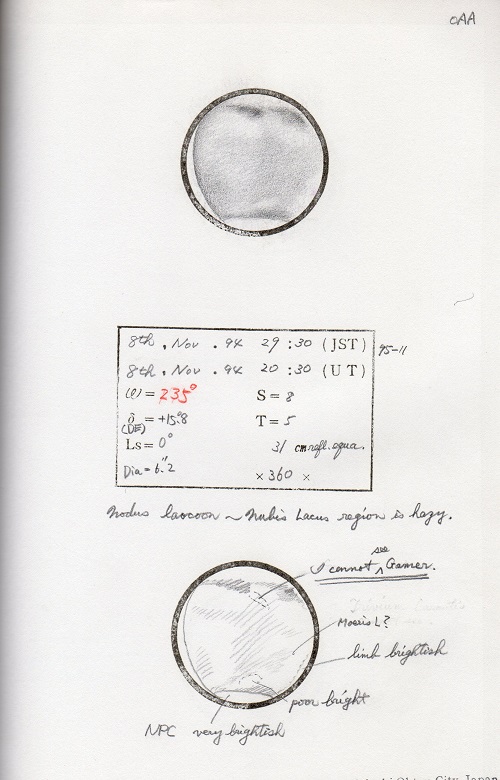 OAA
8th , Nov . 94 29 : 30 (JST)
95-11
8th , Nov . 94 20 : 30 (UT)
(ω) = 235° S = 8
δ = +15°.8 T = 5
(DE)
Ls = 0° 31 cm refl. equa.
Dia = 6".2 × 360 ×
Nodus Laocoon ~ Nubis Lacus region is hazy.
see
I cannot ‸ Gamer.
Moeris L?
limb brightish
poor bright
NPC very brightish
City, Japan